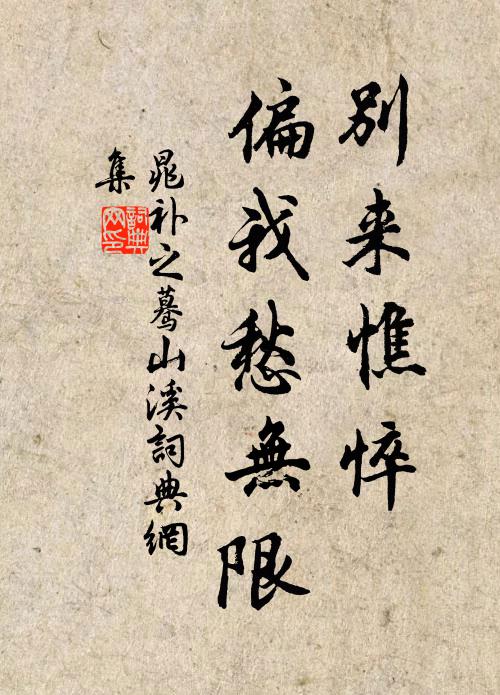 別来憔悴
偏我愁無限
晁补之蓦山溪詞典網
集
詞典网印